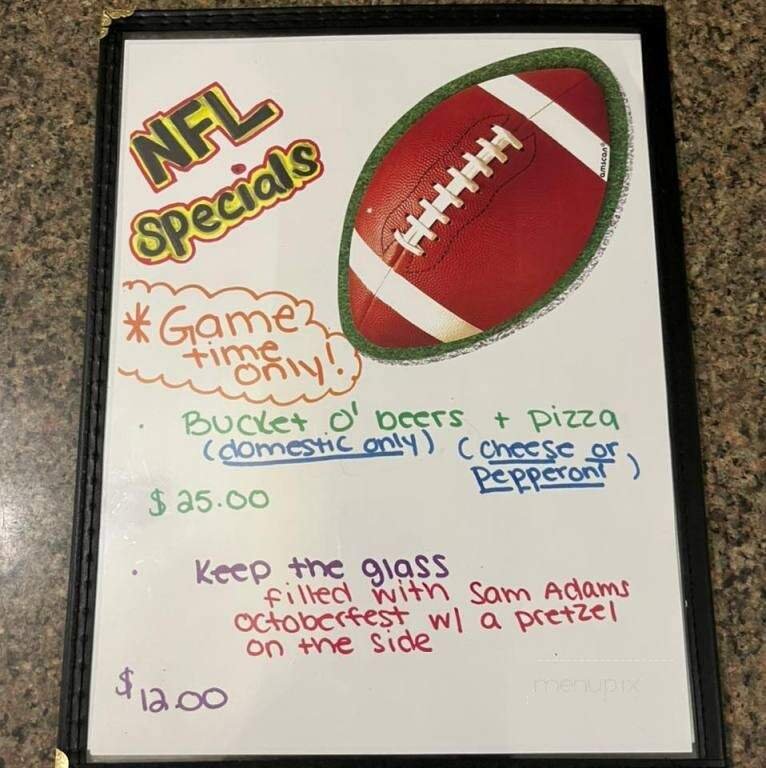 NFL
specials
amscan
* Game
time
only!
• Bucket o' beers + pizza
(domestic only) (cheese or
pepperoni)
$25.00
• Keep the glass
filled with Sam Adams
octoberfest w/ a pretzel
on the side
$12.00
menupix